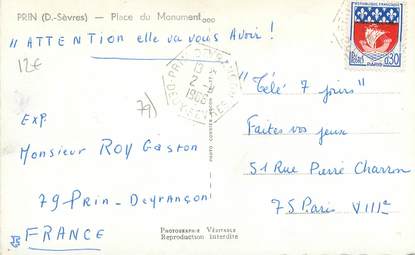 PRIN (D.-Sèvres) — Place du Monument...
"ATTENTION elle va vous Avoir !
12€
79)
EXP.
Monsieur ROY Gaston
79 Prin-Deyrançon
FRANCE
PHOTOGRAPHIE VÉRITABLE
Reproduction Interdite
RÉPUBLIQUE FRANÇAISE
POSTES
0,30
PARIS
"Télé 7 jours"
Faites vos jeux
51 Rue Pierre Charron
75 Paris VIIIe